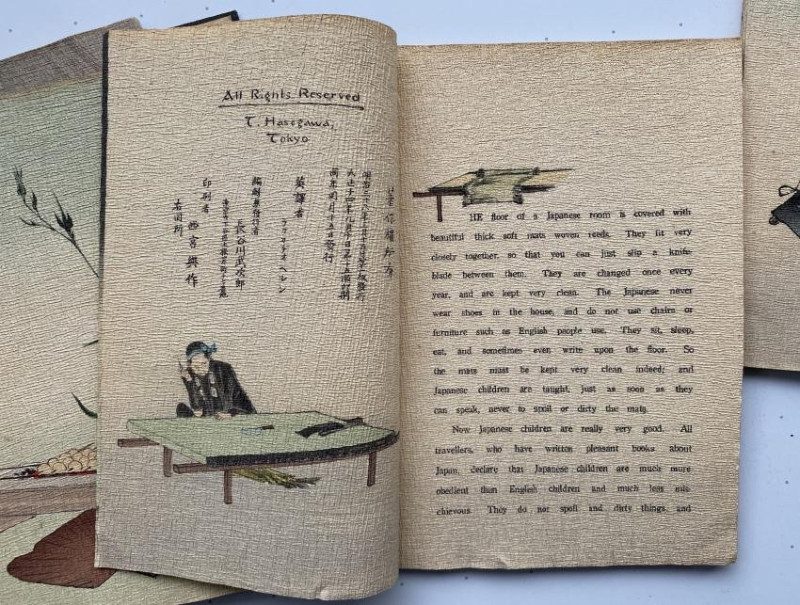 All Rights Reserved
T. Hasegawa,
Tokyo
著作權所有
英譯者
ラフカヂオ ヘルン
編輯兼發行者
長谷川武次郎
印刷者 西宮與作
右同所
HE floor of a Japanese room is covered with
beautiful thick soft mats woven reeds. They fit very
closely together, so that you can just slip a knife-
blade between them. They are changed once every
year, and are kept very clean. The Japanese never
wear shoes in the house, and do not use chairs or
furniture such as English people use. They sit, sleep,
eat, and sometimes even write upon the floor. So
the mats must be kept very clean indeed; and
Japanese children are taught, just as soon as they
can speak, never to spoil or dirty the mats.
Now Japanese children are really very good. All
travellers, who have written pleasant books about
Japan, declare that Japanese children are much more
obedient than English children and much less mis-
chievous. They do not spoil and dirty things, and